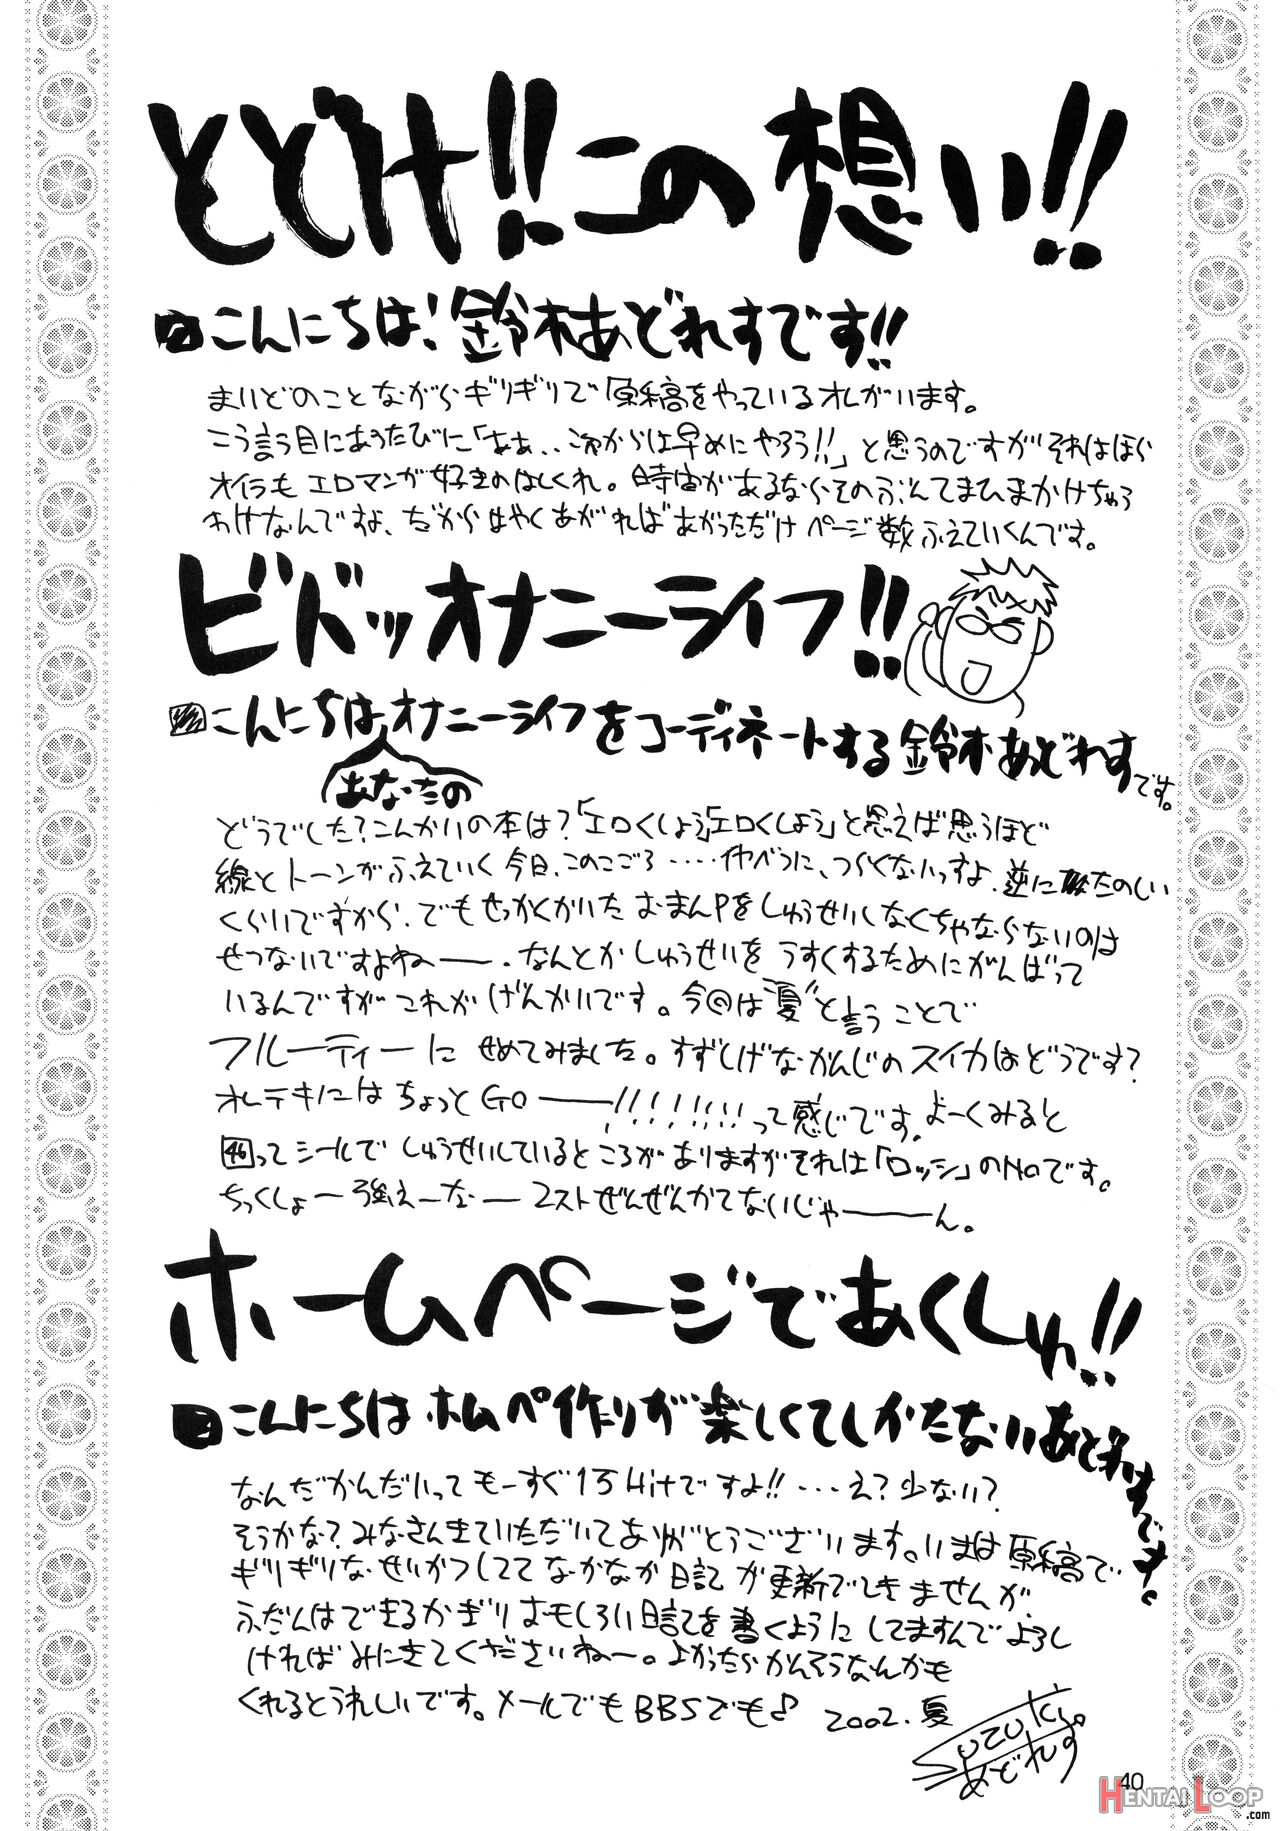 とどけ!!この想い!!
こんにちは!鈴木あどれすです!!
まいどのことながらギリギリで原稿をやっているオレがいます。
こう言う目にあうたびに「ああ..これからは早めにやろう!!」と思うのですがそれはほら
オイラもエロマンガ好きのはしくれ。時間があるならそのぶんてまひまかけちゃう
わけなんですよ、だからはやくあがればあがっただけページ数ふえていくんです。
ビバッオナニーライフ!!
こんにちはオナニーライフをコーディネートする鈴木あどれすです。
あなたの
どうでした?こんかいの本は?「エロくしよう」「エロくしよう」と思えば思うほど
線とトーンがふえていく今日、このころ‥‥べつに、つらくないっすよ、逆にたのしい
くらいですから、でもせっかくかいたおまんPをしゅうせいしなくちゃならないのは
せつないですよねー、なんとかしゅうせいをうすくするためにがんばって
いるんですがこれがげんかいです。今回は"夏"と言うことで
フルーティーにせめてみました。すずしげなかんじのスイカはどうです?
オレテキにはちょっとGOー!!!!!!!!って感じです。よーくみると
46ってシールでしゅうせいしているところがありますがそれは「ロッシ」のNoです。
ちっくしょー強えーなー2ストぜんぜんかてないじゃーーん。
ホームページであくしゅ!!
こんにちはホムペ作りが楽しくてしかたないあどれすです。
なんだかんだいってもーすぐ1万Hitですよ!!‥‥え?少ない?
そうかな?みなさんきていただいてありがとうございます。いまは原稿で
ギリギリなせいかつしててなかなか日記が更新できませんが、
ふだんはできるかぎりおもしろい日記を書くようにしてますんでよろし
ければみにきてくださいねー。よかったらかんそうなんかも
くれるとうれしいです。メールでもBBSでも♪ 2002.夏
Suzuki
あどれす
40
HENTAI LOOP
.com